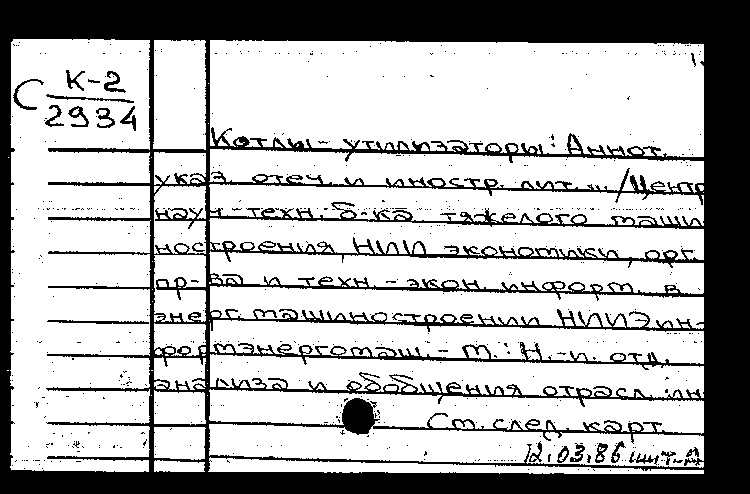 С К-2
2934
Котлы-утилизаторы: Аннот.
указ. отеч. и иностр. лит... /Центр.
науч.-техн. б-ка тяжелого маши-
ностроения, НИИ экономики, орг.
пр-ва и техн.-экон. информ. в
энерг. машиностроении НИИЭин-
формэнергомаш. - М.: Н.-и. отд.
анализа и обобщения отрасл. ин-
См. след. карт.
12.03.86